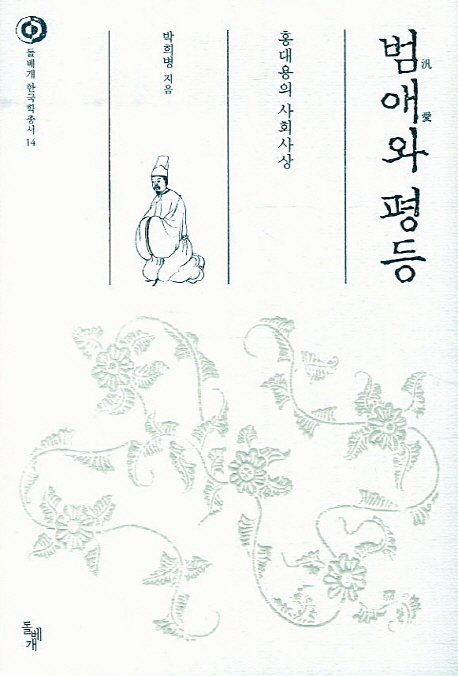 범애와 평등
汎愛
홍대용의 사회사상
박희병 지음
돌베개 한국학총서 14
돌베개